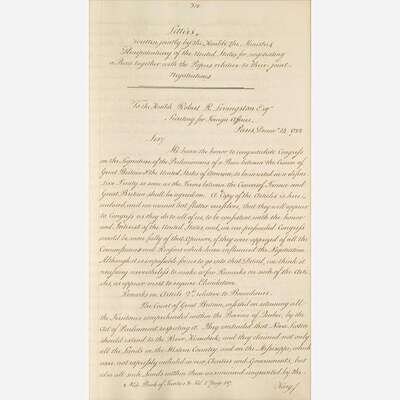 Letters,
written jointly by the Honble the Ministers
Plenipotentiary of the United States for negotiating
a Peace together with the Papers relative to their joint
Negotiations
To the Honble Robert R. Livingston Esqr
Secretary for foreign Affairs.
Paris, Decemr 14, 1782
Sir,
We have the honor to congratulate Congress
on the Signature of the Preliminaries of a Peace between the Crown of
Great Britain & the United States of America, to be inserted in a defini-
tive Treaty so soon as the Terms between the Crowns of France and
Great Britain shall be agreed on. A Copy of the Articles is here
inclosed, and we cannot but flatter ourselves, that they will appear
to Congress as they do to all of us, to be consistent with the honor
and Interest of the United States, and we are persuaded Congress
would be more fully of that Opinion, if they were apprized of all the
Circumstances and Reasons which have influenced the Negotiation.
Although it is impossible for us to go into that Detail, we think it
necessary nevertheless to make a few Remarks on such of the Arti-
cles, as appear most to require Elucidation.
Remarks on Article 2d relative to Boundaries.
The Court of Great Britain, insisted on retaining all
the Territories comprehended within the Province of Quebec, by the
Act of Parliament respecting it. They contended that Nova Scotia
should extend to the River Kennebeck; and they claimed not only
all the Lands in the Western Country, and on the Mississippi, which
were not expressly included in our Charters and Governments, but
also all such Lands within them as remained ungranted by the
King